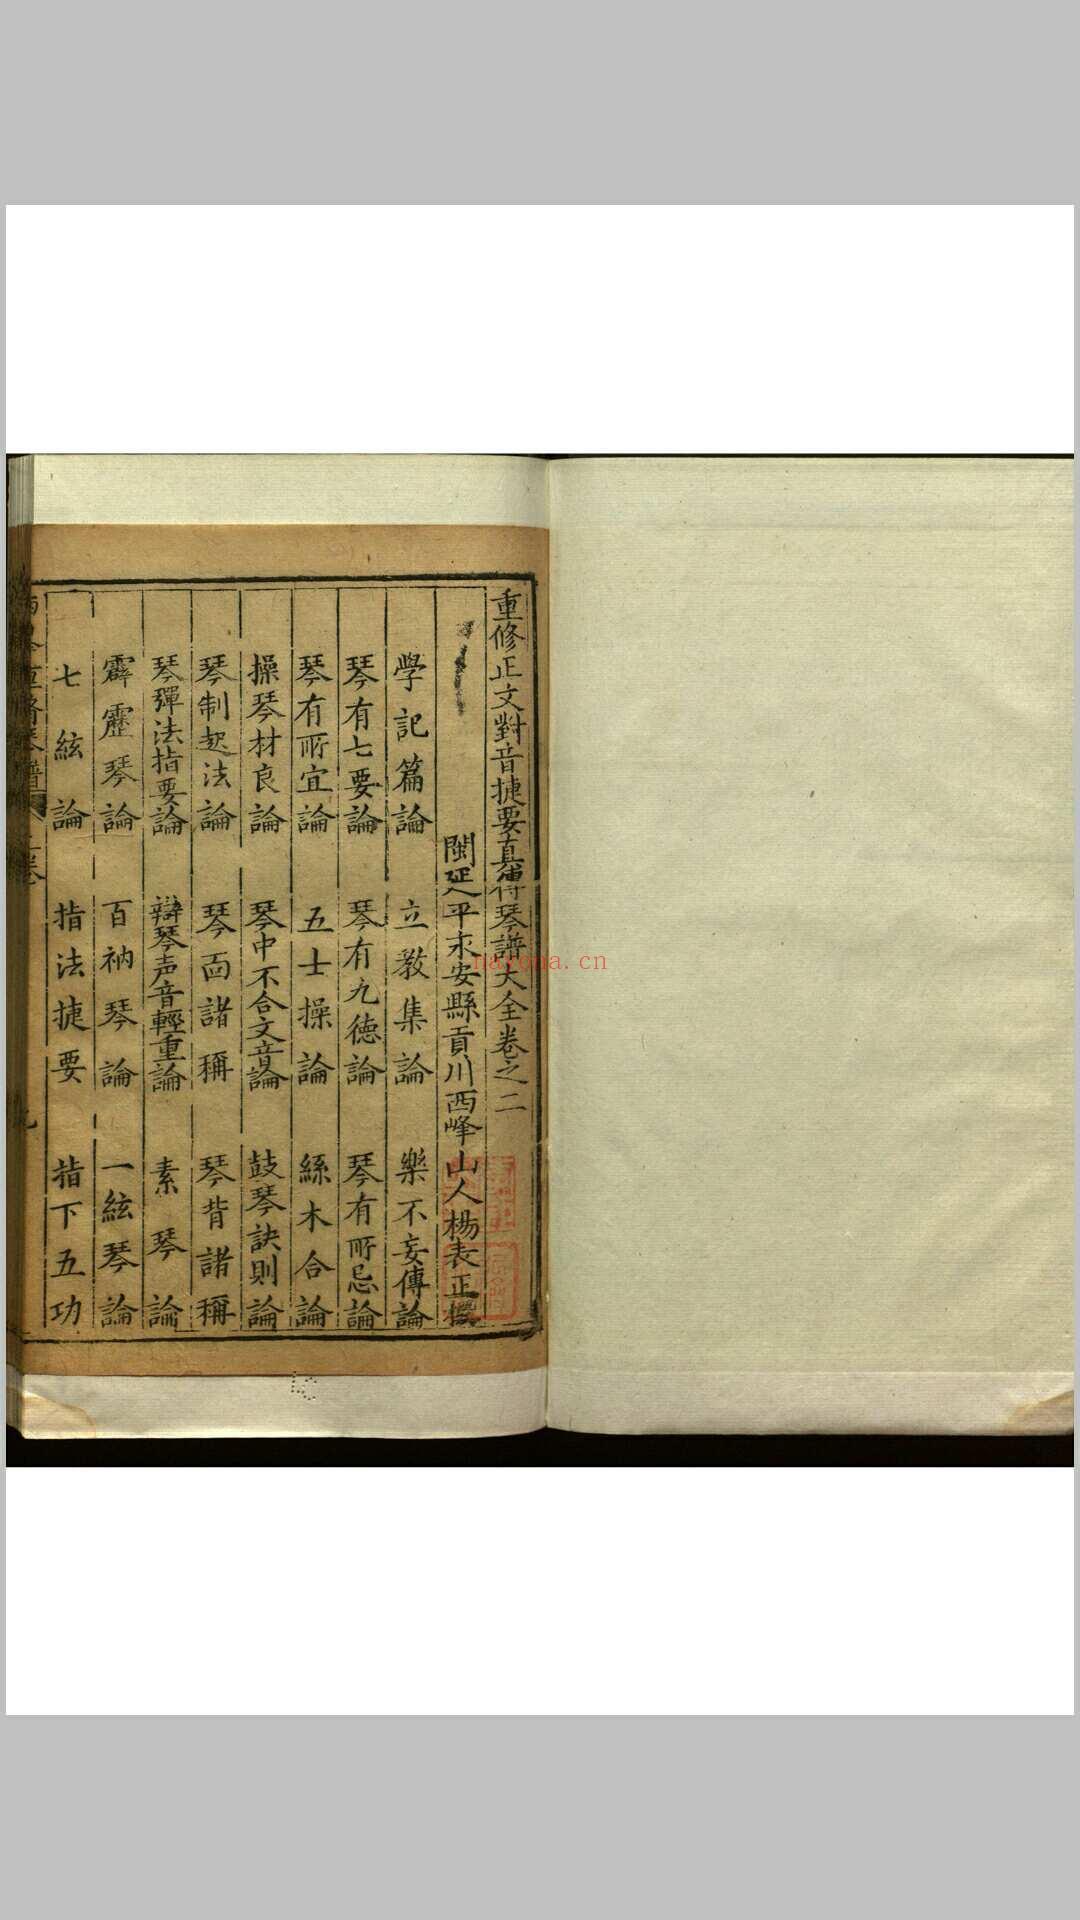 重修正文對音捷要真傳琴譜大全卷之二
閩延平永安縣貢川西峰山人楊表正撰
學記篇論 立教集論 樂不妄傳論
琴有七要論 琴有九德論 琴有所忌論
琴有所宜論 五士操論 絲木合論
操琴材良論 琴中不合文音論 鼓琴訣則論
琴制起法論 琴面諸稱 琴背諸稱
琴彈法指要論 辯琴声音輕重論 素琴論
霹靂琴論 百衲琴論 一絃琴論
七絃論 指法捷要 指下五功
nayona.cn